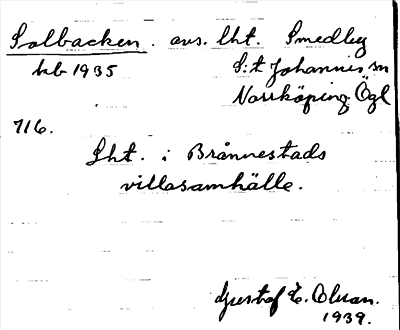 Solbacken. avs. lht. Smedby
kb 1935 S:t Johannis sn
Norrköping Ögl
716.
Lht. i Brånnestads
villasamhälle.
Gustaf E. Olsson.
1939.